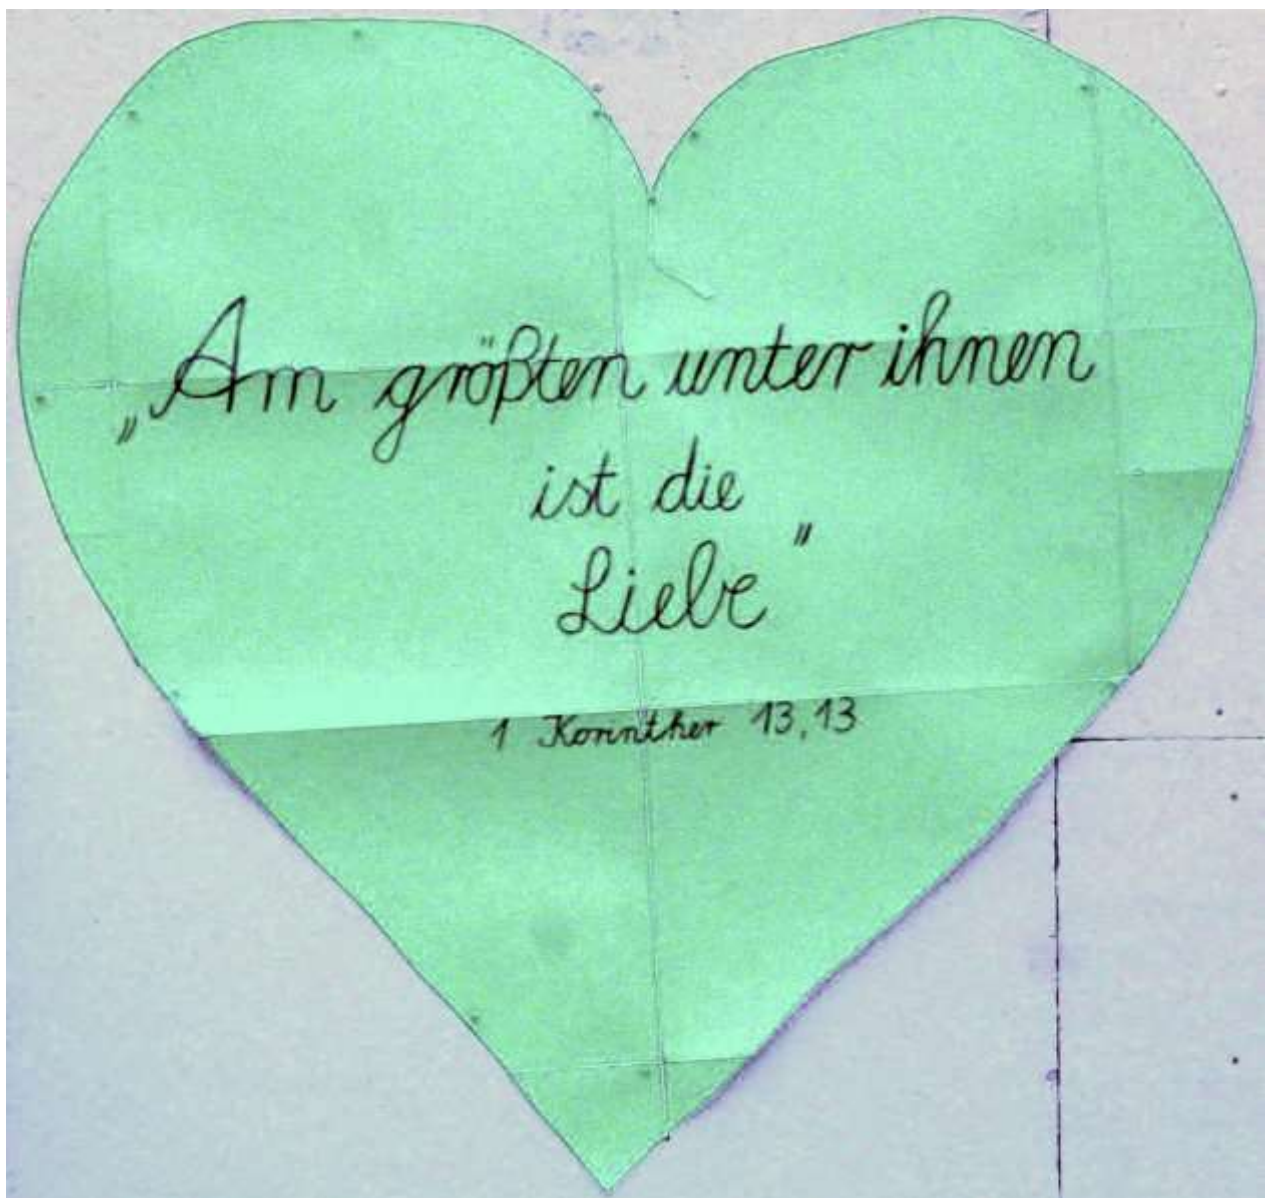 „Am größten unter ihnen
ist die
Liebe"
1 Korinther 13,13